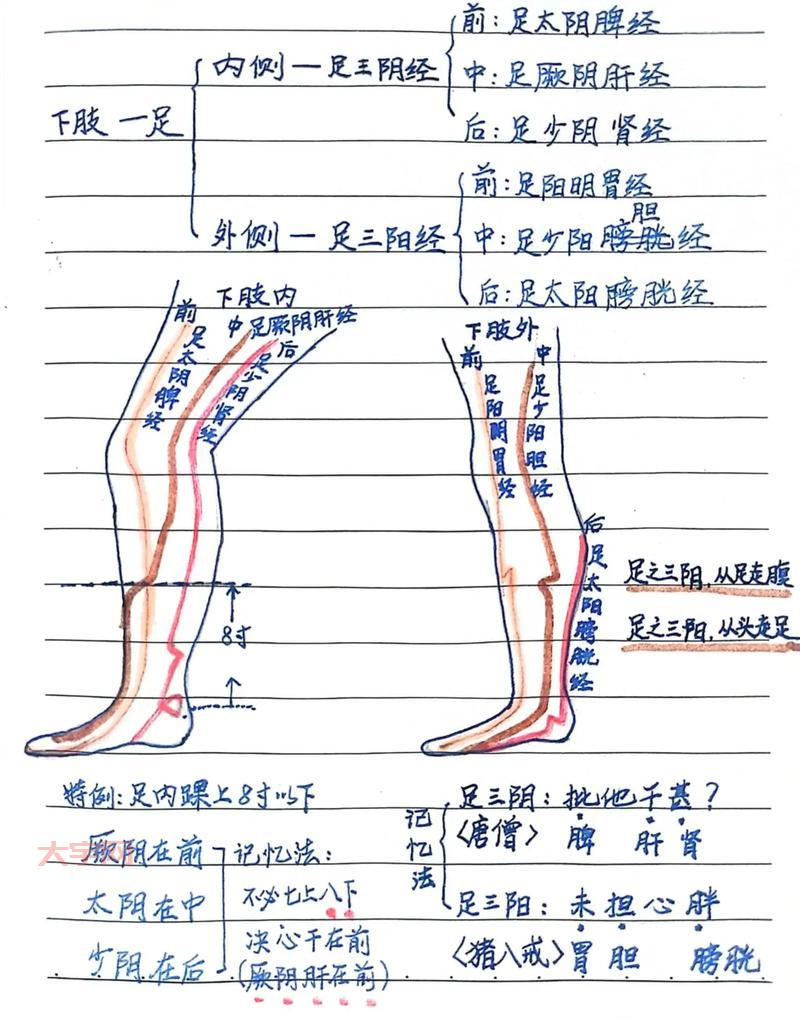 前：足太阴脾经
内侧一足三阴经
中：足厥阴肝经
下肢一足
后：足少阴肾经
前：足阳明胃经
胆
外侧一足三阳经
中：足少阳膀胱经
后：足太阳膀胱经
下肢内
前
足太阴脾经
中足厥阴肝经
后
足少阴肾经
8寸
下肢外
前
足阳明胃经
中
足少阳胆经
后足太阳膀胱经
足之三阴，从足走腹
足之三阳，从头走足
特例：足内踝上8寸以下
厥阴在前
太阴在中
少阴在后
记忆法：
不必七上八下
决心干在前
(厥阴肝在前)
记忆法
足三阴：批他干甚？
〈唐僧〉 脾 肝 肾
足三阳：未担心胖
〈猪八戒〉胃 胆 膀胱